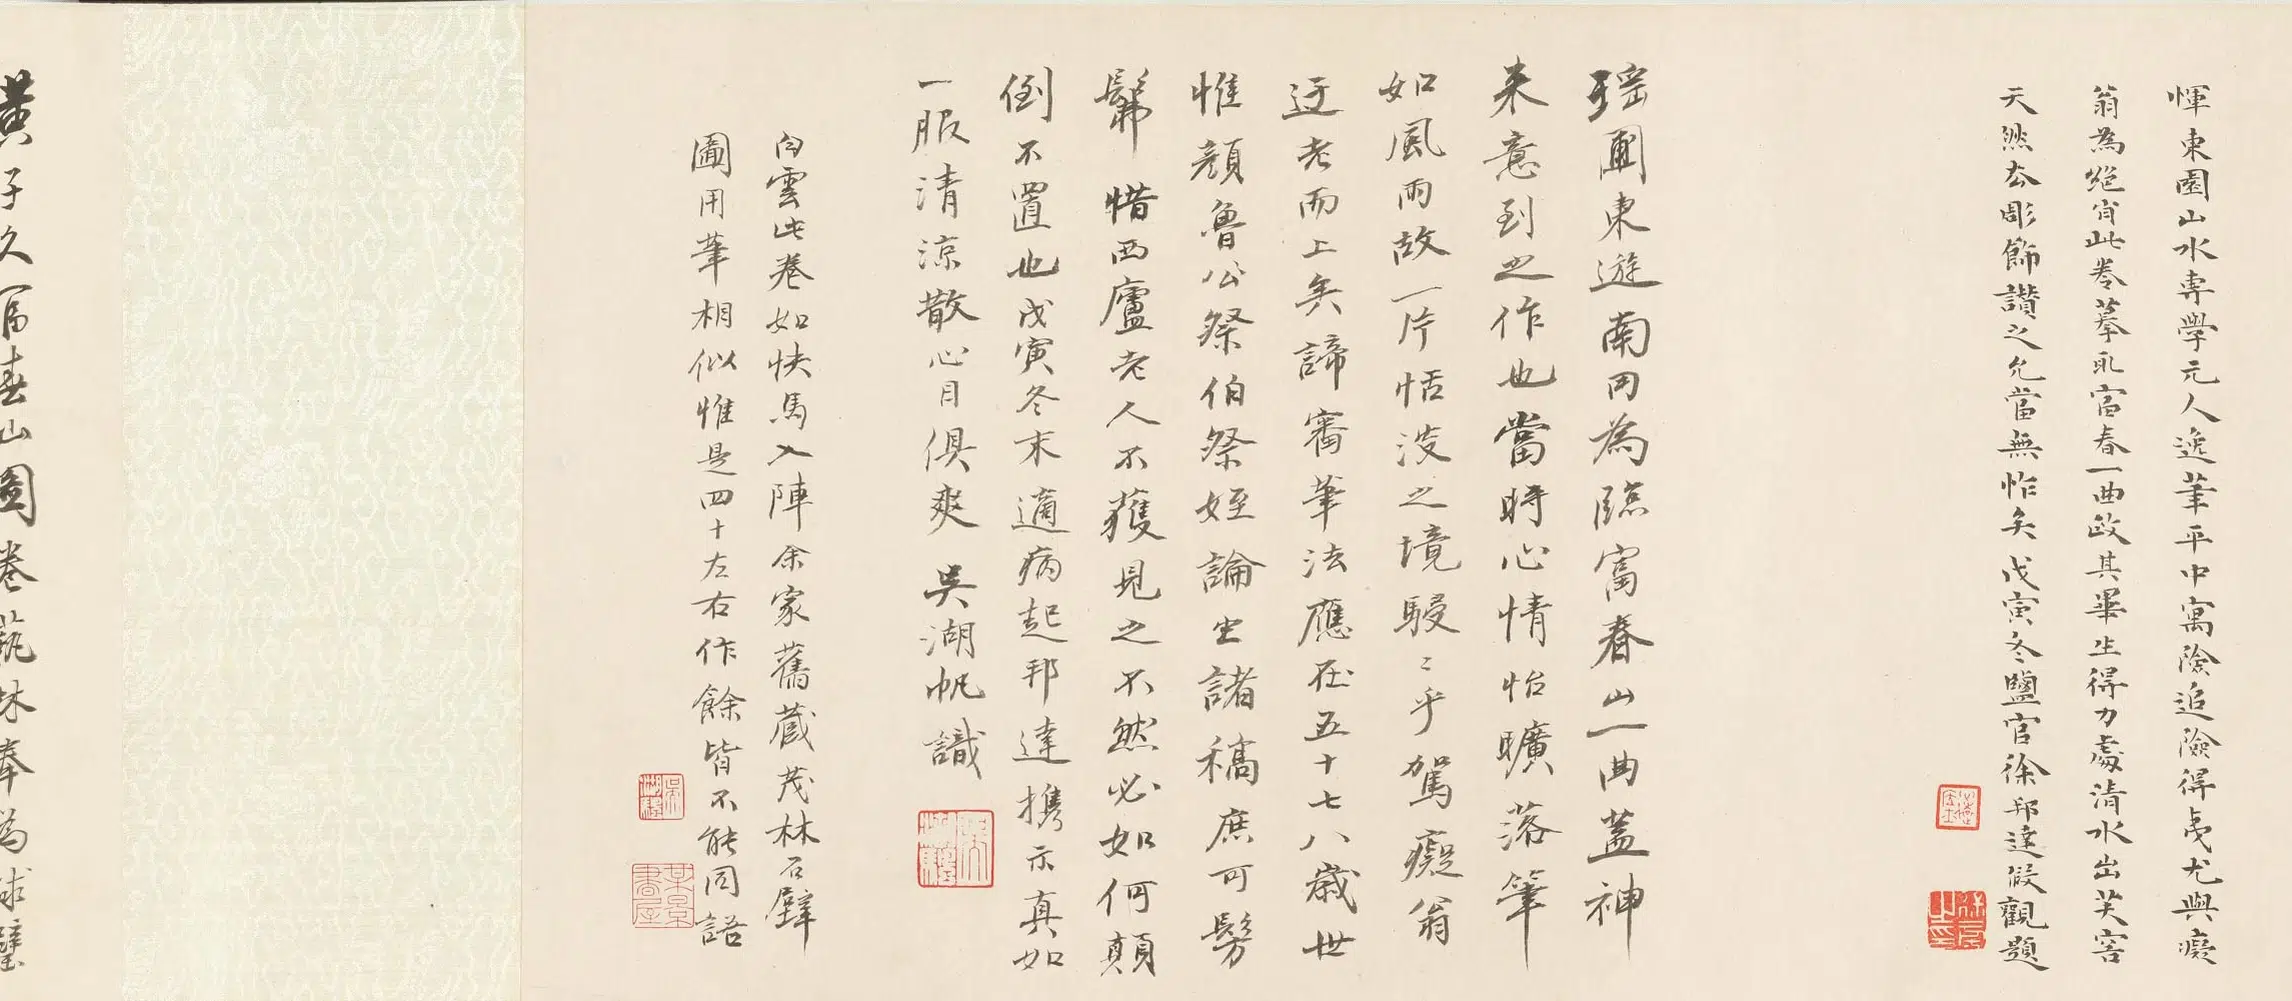 惲東園山水專學元人逸筆平中寓險追險得夷尤與癡
翁為絕肖此卷摹取富春一曲啟其畢生得力處清水出芙容
天然去彫飾讚之允當無怍矣戊寅冬鹽官徐邦達假觀題
瑶圃東遊南田為臨富春山一曲蓋神
来意到之作也當時心情怡曠落筆
如風雨故一片恬淡之境駸〻乎駕癡翁
迂老而上矣諦審筆法應在五十七八歲世
惟顏魯公祭伯祭姪論坐諸稿庶可髣
髴惜西廬老人不獲見之不然必如何顛
倒不置也戊寅冬末適病起邦達携示真如
一服清涼散心目俱爽 吳湖帆識
白雲此卷如快馬入陣余家舊藏茂林石壁
圖用筆相似惟是四十左右作餘皆不能同語
黃子久富春山圖卷藏林奉為球璧